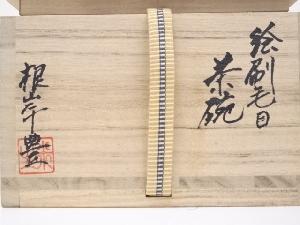 絵刷毛目
茶碗
根山平 豊